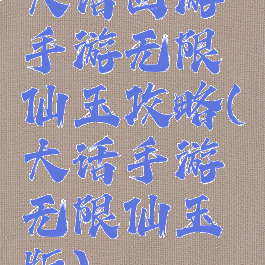 大话西游
手游无限
仙玉攻略(
大话手游
无限仙玉
版)